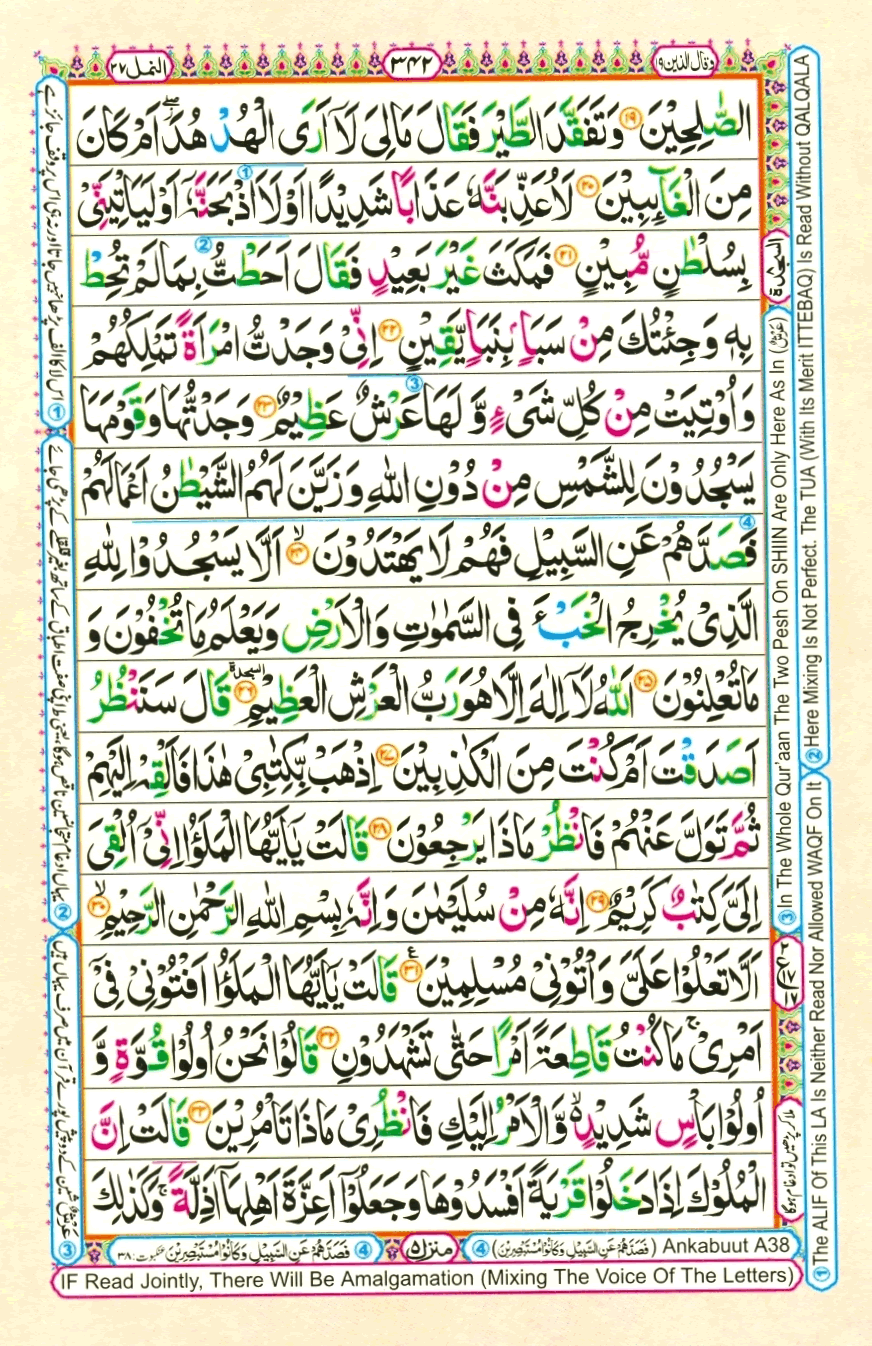 وقال الذين ١٩
٣٤٢
النمل ٢٧
الصّٰلِحِيْنَ ﴿١٩﴾ وَتَفَقَّدَ الطَّيْرَ فَقَالَ مَالِىَ لَاۤ اَرَى الْهُدْهُدَ ۖ اَمْ كَانَ
مِنَ الْغَآئِبِيْنَ ﴿٢٠﴾ لَاُعَذِّبَنَّهٗ عَذَابًا شَدِيْدًا اَوْ لَا۟اَذْبَحَنَّهٗۤ اَوْ لَيَاْتِيَنِّىْ
بِسُلْطٰنٍ مُّبِيْنٍ ﴿٢١﴾ فَمَكَثَ غَيْرَ بَعِيْدٍ فَقَالَ اَحَطْتُّ بِمَا لَمْ تُحِطْ
بِهٖ وَجِئْتُكَ مِنْ سَبَاٍۭ بِنَبَاٍ يَّقِيْنٍ ﴿٢٢﴾ اِنِّىْ وَجَدْتُّ امْرَاَةً تَمْلِكُهُمْ
وَاُوْتِيَتْ مِنْ كُلِّ شَىْءٍ وَّ لَهَا عَرْشٌ عَظِيْمٌ ﴿٢٣﴾ وَجَدْتُّهَا وَقَوْمَهَا
يَسْجُدُوْنَ لِلشَّمْسِ مِنْ دُوْنِ اللّٰهِ وَزَيَّنَ لَهُمُ الشَّيْطٰنُ اَعْمَالَهُمْ
فَصَدَّهُمْ عَنِ السَّبِيْلِ فَهُمْ لَا يَهْتَدُوْنَ ﴿٢٤﴾ۙ اَلَّا يَسْجُدُوْا لِلّٰهِ
الَّذِىْ يُخْرِجُ الْخَبْءَ فِى السَّمٰوٰتِ وَالْاَرْضِ وَيَعْلَمُ مَا تُخْفُوْنَ وَ
مَا تُعْلِنُوْنَ ﴿٢٥﴾ اَللّٰهُ لَاۤ اِلٰهَ اِلَّا هُوَ رَبُّ الْعَرْشِ الْعَظِيْمِ ﴿٢٦﴾ السجدة قَالَ سَنَنْظُرُ
اَصَدَقْتَ اَمْ كُنْتَ مِنَ الْكٰذِبِيْنَ ﴿٢٧﴾ اِذْهَبْ بِّكِتٰبِىْ هٰذَا فَاَلْقِهْ اِلَيْهِمْ
ثُمَّ تَوَلَّ عَنْهُمْ فَانْظُرْ مَاذَا يَرْجِعُوْنَ ﴿٢٨﴾ قَالَتْ يٰۤاَيُّهَا الْمَلَؤُا اِنِّىْۤ اُلْقِىَ
اِلَىَّ كِتٰبٌ كَرِيْمٌ ﴿٢٩﴾ اِنَّهٗ مِنْ سُلَيْمٰنَ وَاِنَّهٗ بِسْمِ اللّٰهِ الرَّحْمٰنِ الرَّحِيْمِ ﴿٣٠﴾ۙ
اَلَّا تَعْلُوْا عَلَىَّ وَاْتُوْنِىْ مُسْلِمِيْنَ ﴿٣١﴾ قَالَتْ يٰۤاَيُّهَا الْمَلَؤُا اَفْتُوْنِىْ فِىْۤ
اَمْرِىْ ۚ مَا كُنْتُ قَاطِعَةً اَمْرًا حَتّٰى تَشْهَدُوْنِ ﴿٣٢﴾ قَالُوْا نَحْنُ اُولُوْا قُوَّةٍ وَّ
اُولُوْا بَاْسٍ شَدِيْدٍ ۙ وَّالْاَمْرُ اِلَيْكِ فَانْظُرِىْ مَاذَا تَاْمُرِيْنَ ﴿٣٣﴾ قَالَتْ اِنَّ
الْمُلُوْكَ اِذَا دَخَلُوْا قَرْيَةً اَفْسَدُوْهَا وَجَعَلُوْۤا اَعِزَّةَ اَهْلِهَاۤ اَذِلَّةً ۚ وَكَذٰلِكَ
السجدة
③ In The Whole Qur'aan The Two Pesh On SHIIN Are Only Here As In (عَرْشٌ)
② Here Mixing Is Not Perfect. The TUA (With Its Merit ITTEBAQ) Is Read Without QALQALA
① The ALIF Of This LA Is Neither Read Nor Allowed WAQF On It
④ فَصَدَّهُمْ عَنِ السَّبِيْلِ وَكَانُوْا مُسْتَبْصِرِيْنَ عنكبوت: ٣٨
منزل ٥
④ (فَصَدَّهُمْ عَنِ السَّبِيْلِ وَكَانُوْا مُسْتَبْصِرِيْنَ) Ankabuut A38
IF Read Jointly, There Will Be Amalgamation (Mixing The Voice Of The Letters)